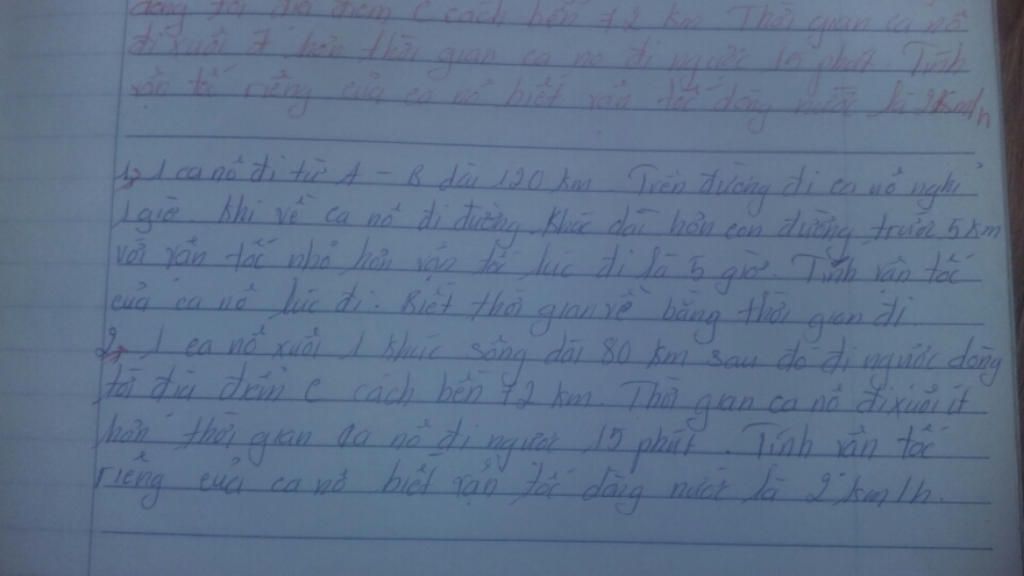 dòng tới địa điểm C cách bến 72 km Thời gian ca nô
đi xuôi ít hơn thời gian ca nô đi ngược 15 phút. Tính
vận tốc riêng của ca nô biết vận tốc dòng nước là 2km/h
1, 1 ca nô đi từ A - B dài 120 km. Trên đường đi ca nô nghỉ
1 giờ. Khi về ca nô đi đường khác dài hơn con đường trước 5 km
với vận tốc nhỏ hơn vận tốc lúc đi là 5 giờ. Tính vận tốc
của ca nô lúc đi. Biết thời gian về bằng thời gian đi.
2, 1 ca nô xuôi 1 khúc sông dài 80 km sau đó đi ngược dòng
tới địa C cách bến 72 km. Thời gian ca nô đi xuôi ít
hơn thời gian ca nô đi ngược 15 phút. Tính vận tốc
riêng của ca nô biết vận tốc dòng nước là 2 km/h.